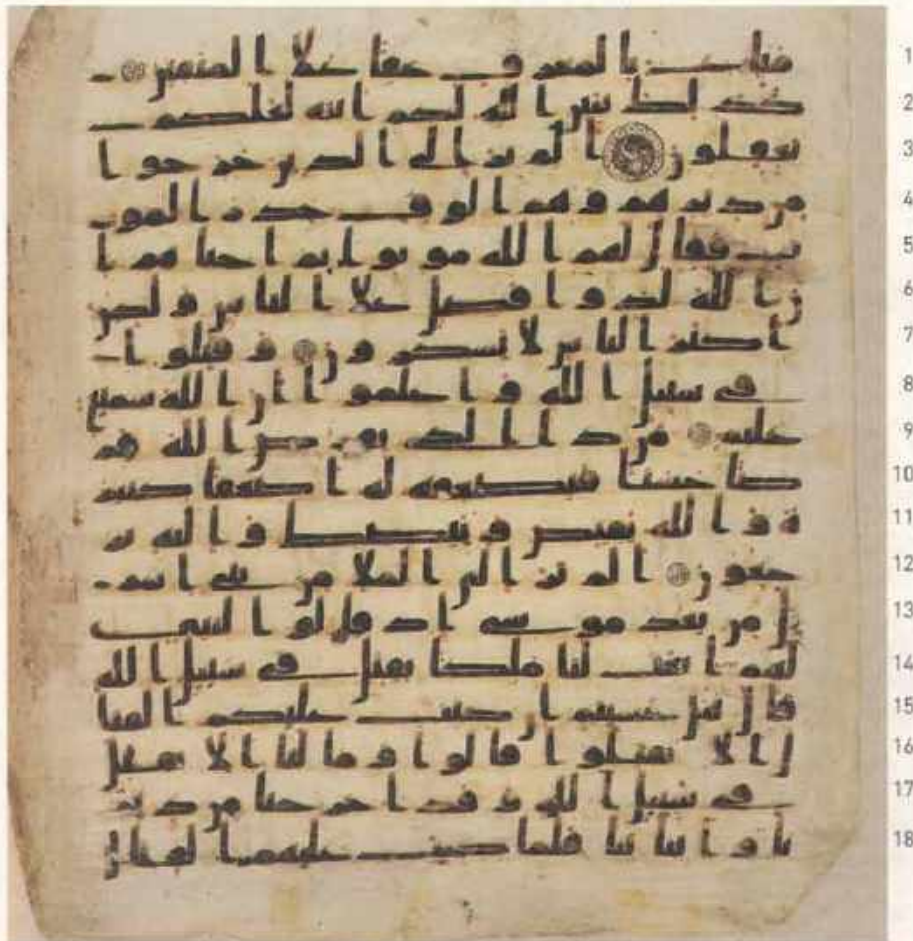 1 متاع بالمعروف حقا علا المتقين
2 كذلك يبين الله لكم ايته لعلكم
3 تعقلون الم تر الى الذين خرجوا
4 من ديرهم وهم الوف حذر المو
5 ت فقال لهم الله موتوا ثم احياهم ا
6 ن الله لذوا فضل علا الناس ولكن
7 اكثر الناس لا يشكرون وقتلوا
8 في سبيل الله واعلموا ان الله سميع
9 عليم من ذا الذي يقرض الله قر
10 ضا حسنا فيضعفه له اضعفا كثير
11 ة والله يقبض ويبصط واليه تر
12 جعون الم تر الى الملا من بني اسر
13 ل من بعد موسى اذ قلوا لنبي
14 لهم ابعث لنا ملكا نقتل في سبيل الله
15 قال هل عسيتم ان كتب عليكم القتا
16 ل الا تقتلوا قالوا وما لنا الا نقتل
17 في سبيل الله وقد اخرجنا من دير
18 نا وابنائنا فلما كتب عليهم القتال